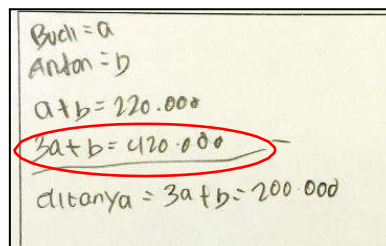 Budi = a
Anton = b
a+b = 220.000
3a+b = 420.000 -
ditanya = 3a+b = 200.000